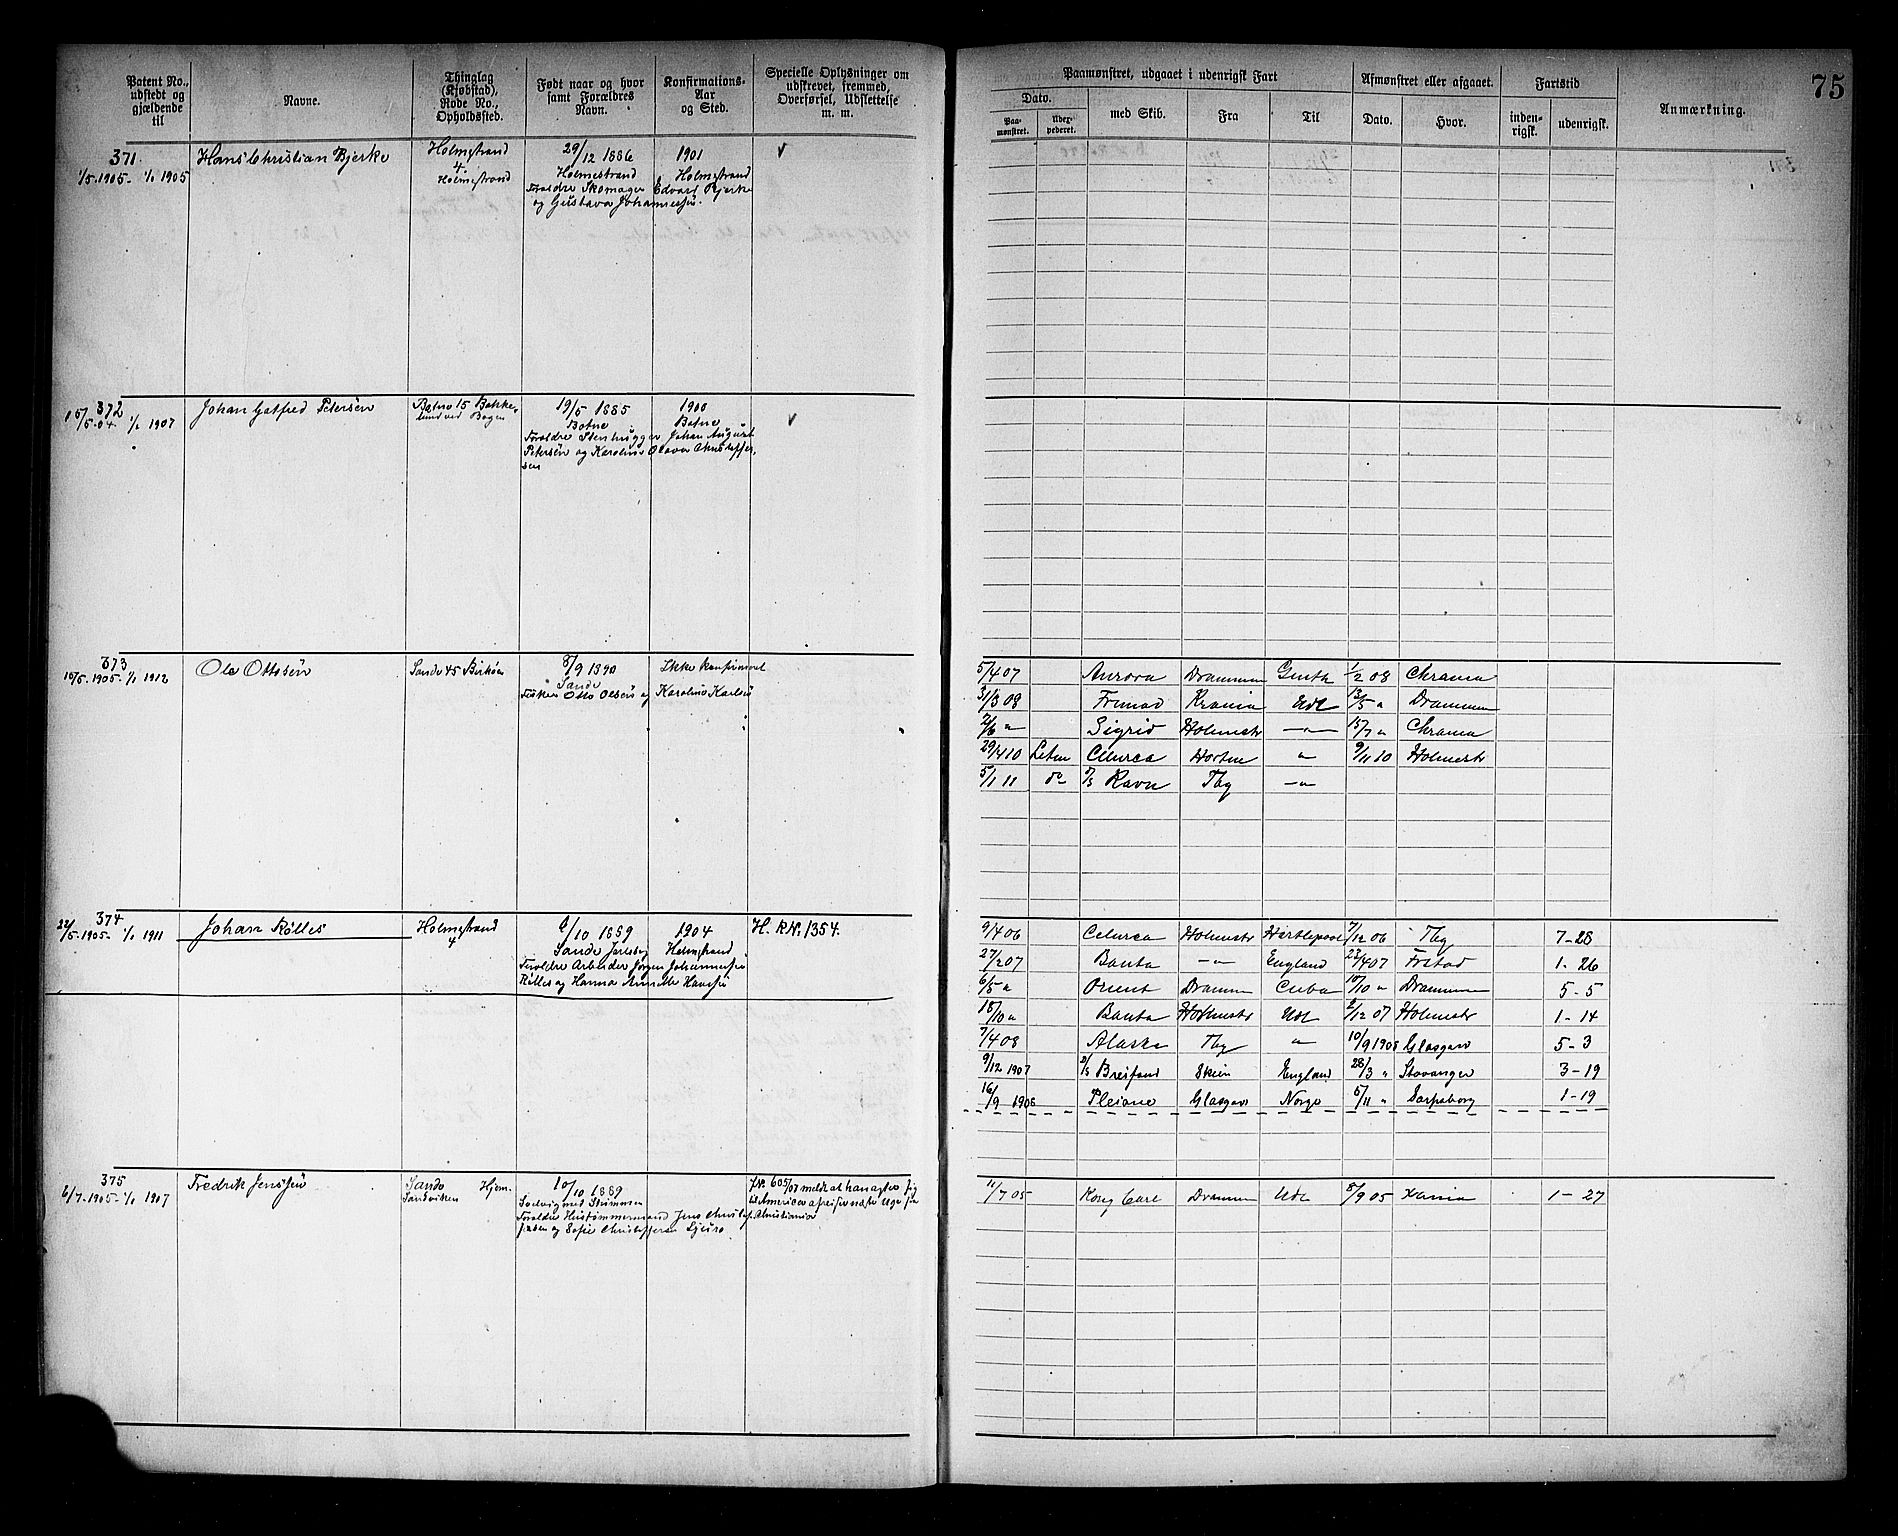 75
Patent No., udstedt og gjældende til
Navne.
Thinglag (Kjøbstad), Rode No., Opholdssted.
Født naar og hvor samt Forældres Navn.
Konfirmations-Aar og Sted.
Specielle Oplysninger om udskrevet, fremmed, Overførsel, Udslettelse m. m.
Paamønstret, udgaaet i udenrigsk Fart
Afmønstret eller afgaaet.
Fartstid
Anmærkning.
Dato.
Paa-mønstret.
med Skib.
Fra
Til
Dato.
Hvor.
inden-rigsk.
udenrigsk.
371
1/5.1905- 1/1 1905
Hans Christian Bjerke
Holmestrand
4
Holmestrand
29/12 1886
Holmestrand
Foraldre Skomager Edvard Bjerke
og Gustava Johannessen.
1901
Holmestrand
372
1907
Johan Gotfred Petersen
Botne 15 Bakke-
lund ved Bogen
19/5 1885
Botne
Foraldre Stenhugger Johan August
Petersen og Karoline Olava Christoffer-
sen
1900
Botne
373
1/1 1912
Ole Ottosen
Sande 45
8/9 1890
Sande
Fisker Otto Olsen og Karoline
Ikke konfirmeret
5/4 07 Aurora Drammen 1/2 08 Chrania
31/3 08 Krania Udl 13/5 " Drammen
2/6 " Sigrid Holmestr —"— 15/7 " Chrania
29/4 10 Celurca Horten " 9/11 10 Holmestr
5/1 11 do D/S Ravn Tbg —"—
374
22/5.1905- 1/1 1911
Johan Rølles
Holmestrand
4
/10 1889
Sande Jarlsberg
Foraldre Arbeider Jørgen Johannessen
Rølles og Hanna Annette Hansen
1904
Holmestrand
H. RN, 1354.
9/4 06 Celurca Holmestr Hartlepool 7/12 06 Tbg 7-28
27/2 07 Banta —"— England 23/4 07 Frstad 1-26
6/5 " Orient Drammen Cuba 10/10 " Drammen 5-5
18/10 " Banta Holmestr Udl 2/12 07 Holmestr 1-14
7/4 08 Alaska Tbg " 10/9 1908 Glasgow 5-3
9/12 1907 D/S Breifond Skien England 28/3 " Stavanger 3-19
16/9 1908 Pleione Glasgow Norge 5/11 " Sarpsborg 1-19
375
6/7.1905- 1/1 1907
Fredrik Jenssen
Sande Hjem.
Sandviken
10/10 1889
Foraldre Hustømmermand Jens Christof-
fersen og Sofie Christoffersen
JN. 605/07 meldt at han agter sig
til Amerika afreiser næste uge fra
Christiania
11/7 05 Kong Carl Drammen Udl 8/9 05 Xania 1-27